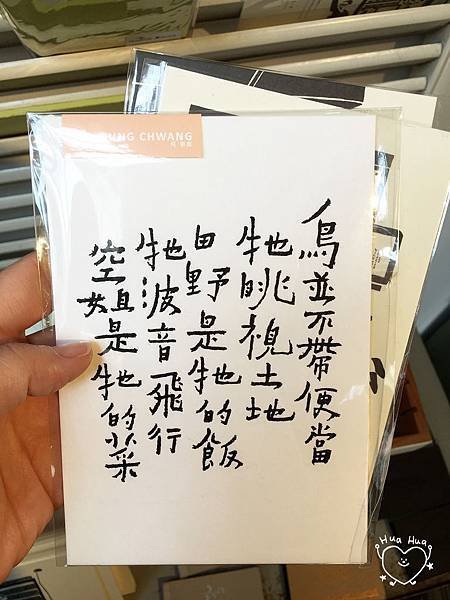 UNG CHWANG
鳥並不帶便當
牠眺視土地
田野是牠的飯
牠波音飛行
空姐是牠的菜
Hua Hua